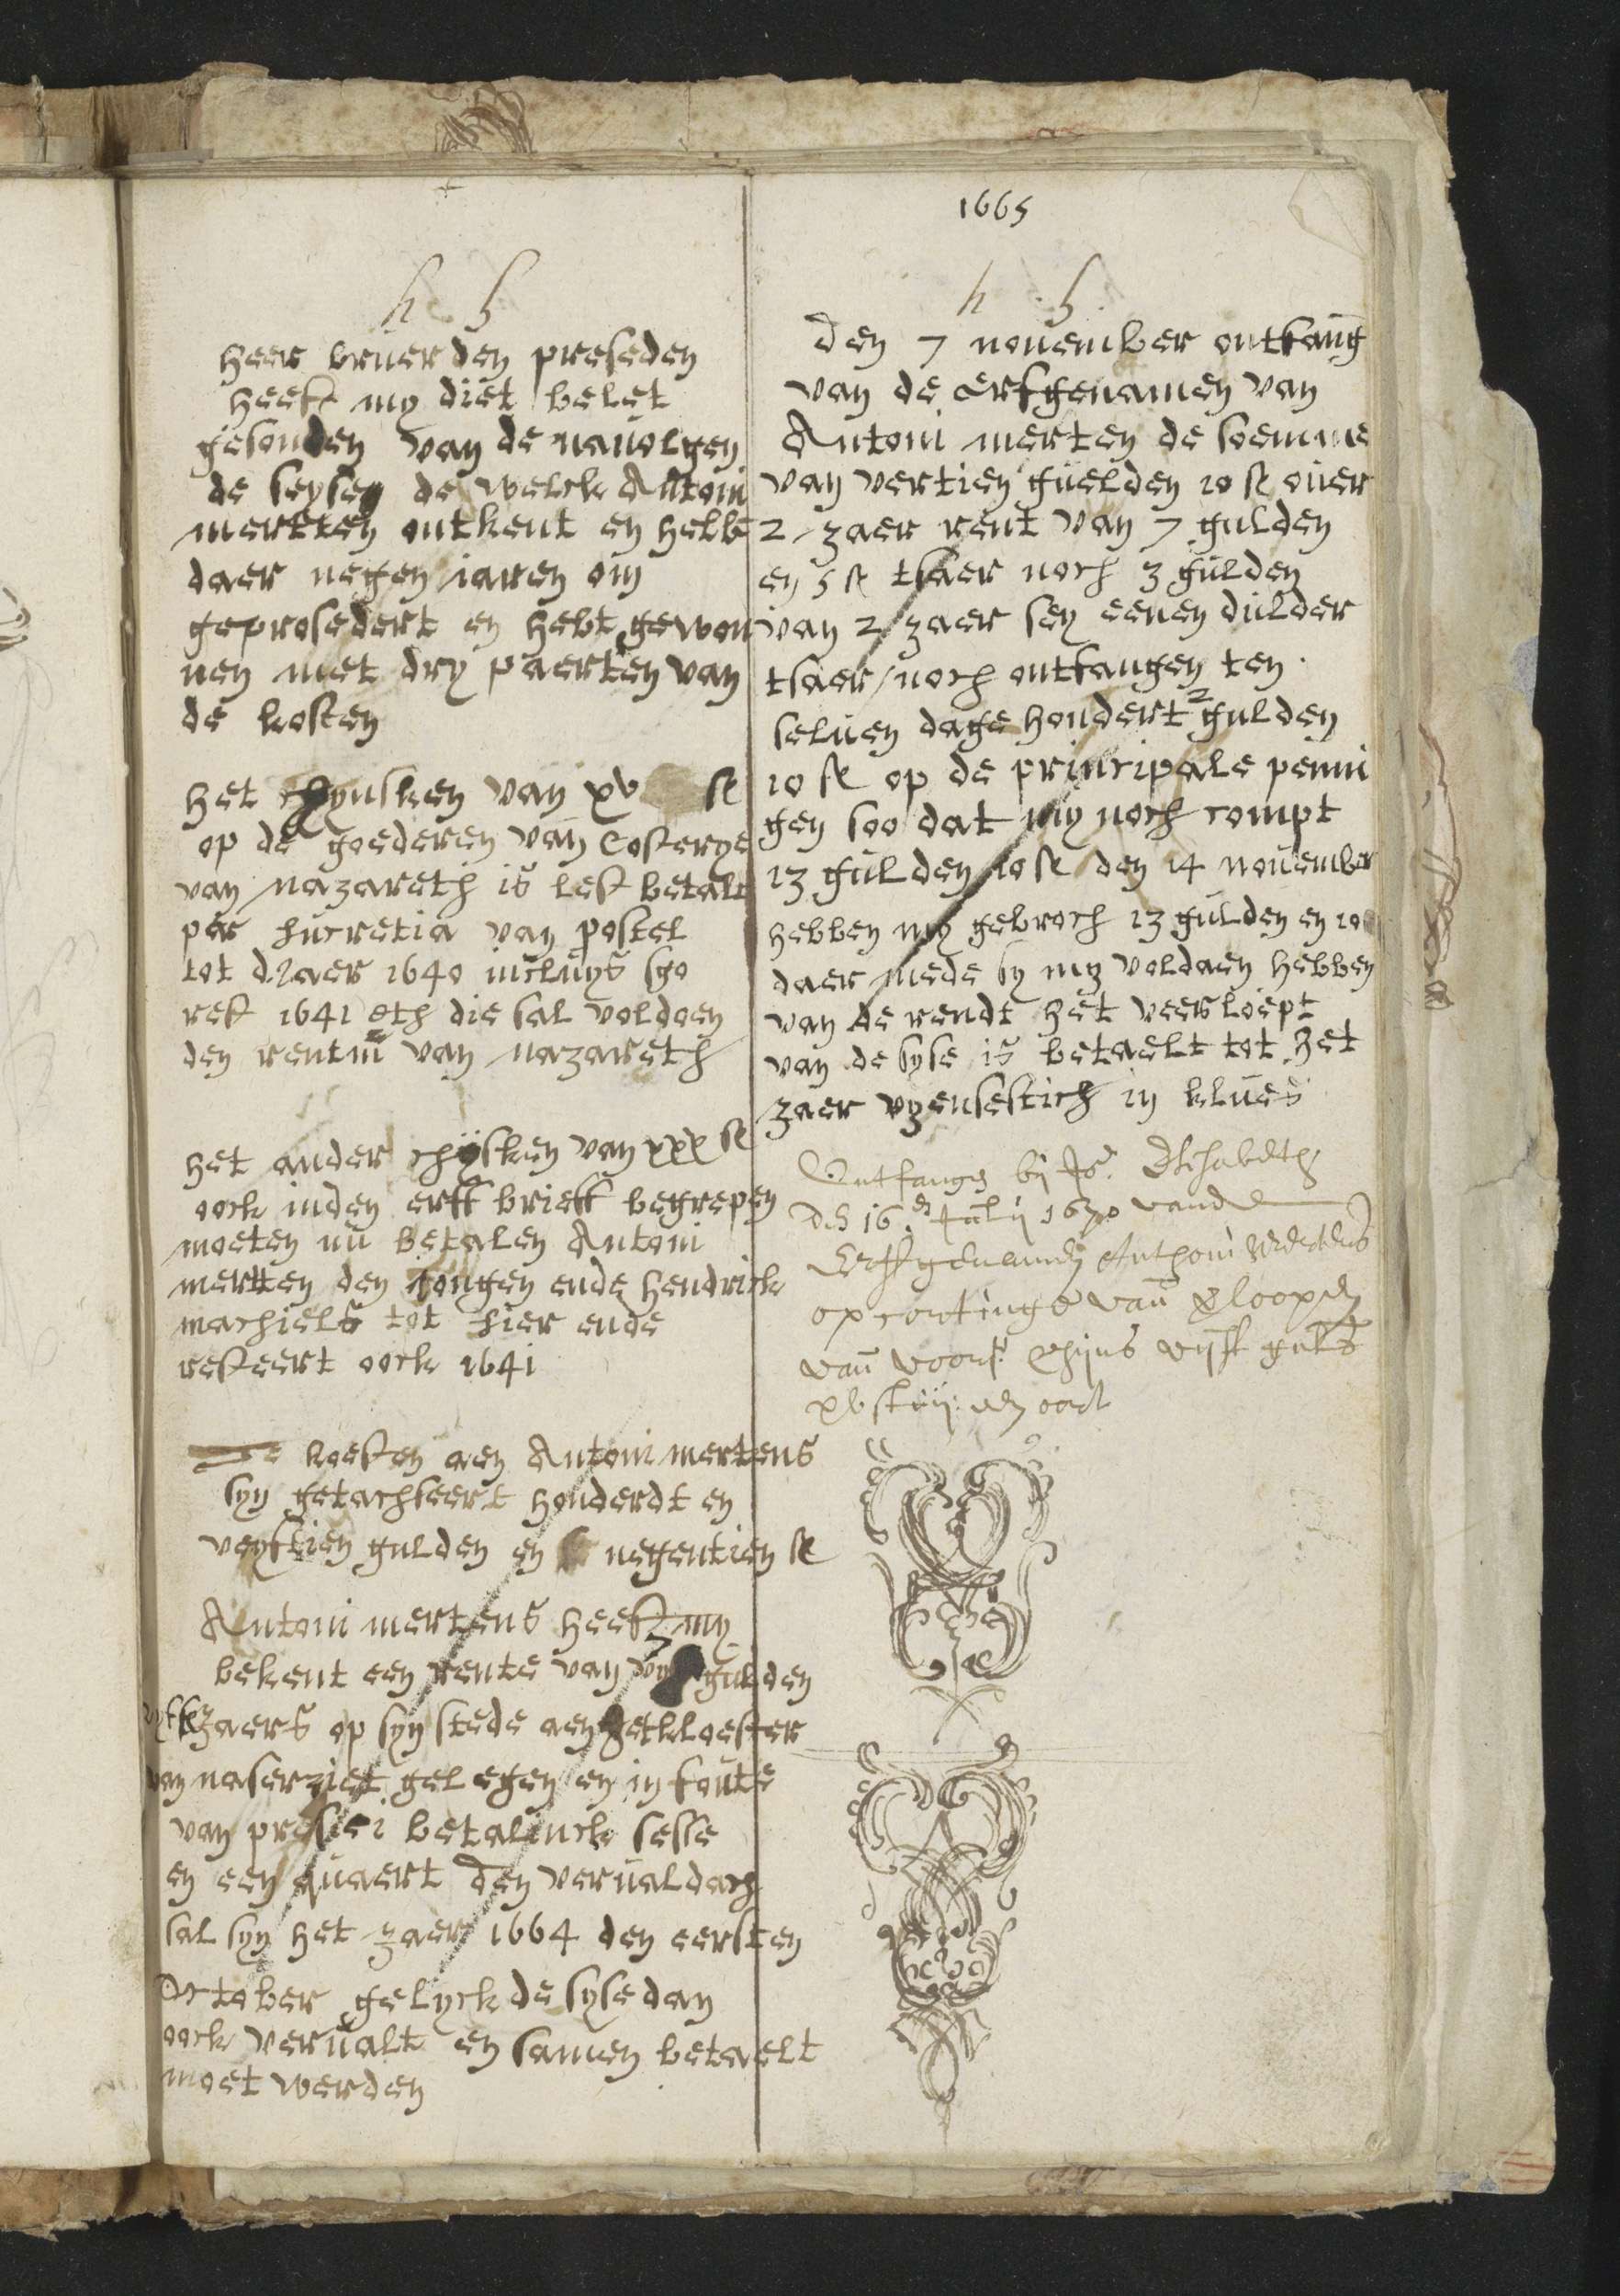 heer bruer den preseden
heeft my diet belet
gesonden van de nauolgen
de seysen de welck Antoni
merten ontkent en hebbe
daer negen iaren om
geprosedert en hebt gewon
nen met dry paerten van
de kosten
het chynsken van xv st
op de goederen van Costerye
van nazareth is lest betalt
per Lucretia van postel
tot d Jaer 1640 incluys sgo
rest 1641 die sal voldoen
den rentm van nazareth
het ander chysken van xxx st
oock inden erff brieff begrepen
moeten nu betalen Antoni
mertten den Jongen ende hendrick
machiels tot Lier ende
resteert oock 1641
De koesten aen Antoni mertens
syn getachseert honderdt en
veyftien gulden en negentien st
Antoni mertens heeft my
bekent een rente van gulden
zaers op syn stede aen het kloester
van naserziet gelegen en in foute
van presiei betalinck sesse
en een quaert den verualdach
sal syn het zaer 1664 den eersten
October gelyck de syse dan
oock verualt en samen betaelt
moet werden
1665
den 7 nouember ontfang
van de erfgenamen van
Antoni merten de soemme
van vertien guelden 10 st ouer
2 zaer rent van 7 gulden
en 5 st tsaer noch 3 gulden
van 2 zaer sey eenen dulder
tsaer / noch ontfangen ten
seluen dage hondert 2 gulden
10 st op de principale penni
gen soo dat my noch compt
13 gulden 10 st den 14 nouember
hebben my gebroch 13 gulden en 10
daer mede sy my voldaen hebben
van de rendt het veerloept
van de syse is betaelt tot het
zaer vyensestich in klues
Ontfangen bij Jo. Elisabeth
den 16 en July 1670 vande
Erffgenamen Anthoni Mertens
op cortinge van verloopen
van voors. chijns vijff guld
xv st en oort